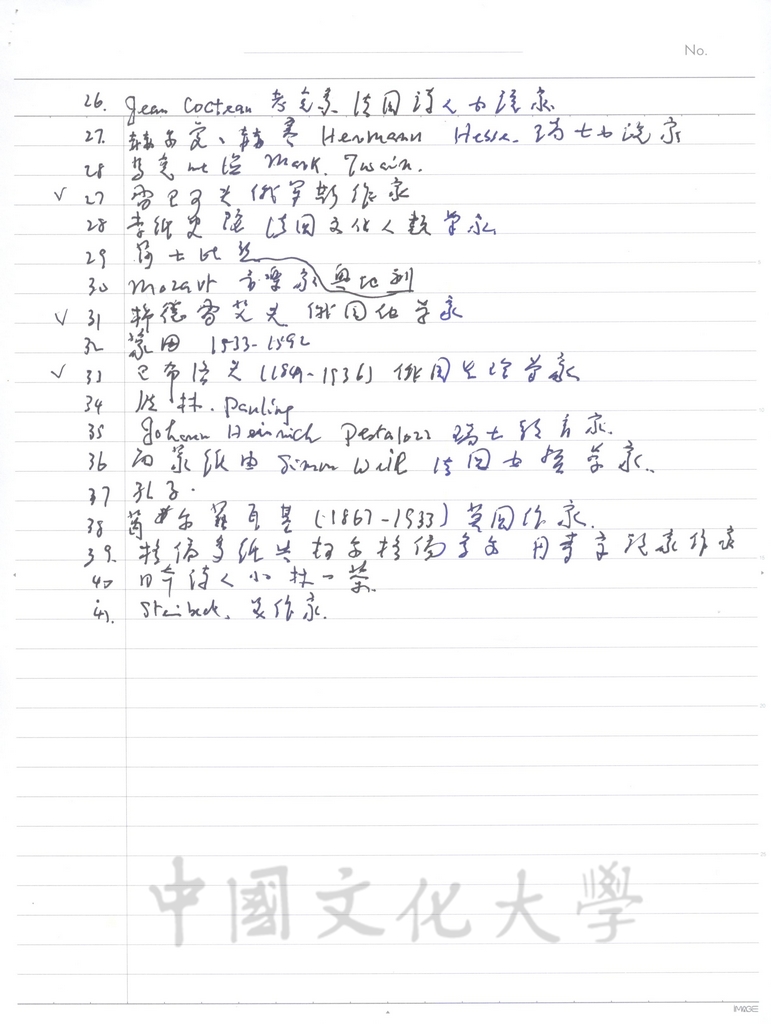 No.
26. Jean Cocteau 考克多 法国诗人小说家
27. 赫尔曼、赫塞 Hermann Hesse. 瑞士小说家
28 马克吐温 Mark. Twain.
✓ 27 雷巴可夫 俄罗斯作家
28 李维史陀 法国文化人类学家
29 莎士比亚
30 Mozart 音樂家 奥地利
✓ 31 斯德雷艾夫 俄国化学家
32 蒙田 1533-1592
✓ 33 巴布洛夫 (1849-1936) 俄国生理学家
34 波林. Pauling
35 Johann Heinrich Pestalozzi 瑞士教育家.
36 西蒙维 Simon Weil 法国女哲学家.
37 孔子.
38 高尔 (1867-1933) 英国作家.
39. 拉 作家
40 日本诗人小林一茶.
41. Steinbeck. 美作家.
中國文化大學
IMAGE